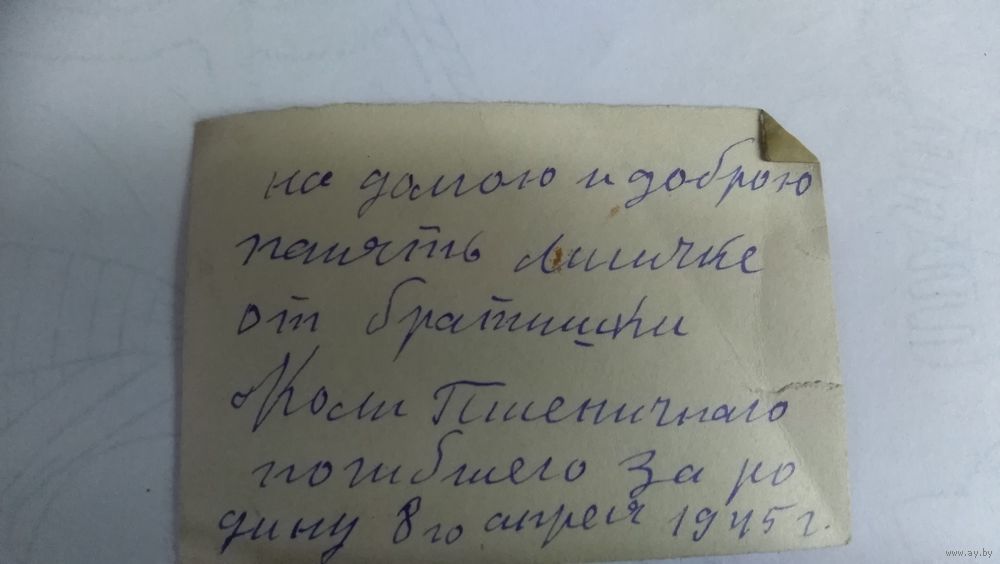 на долгою и доброю
память Лиличке
от братишки
Коли Пшеничнаго
погибшего за ро
дину 8го апреля 1945 г.
www.ay.by